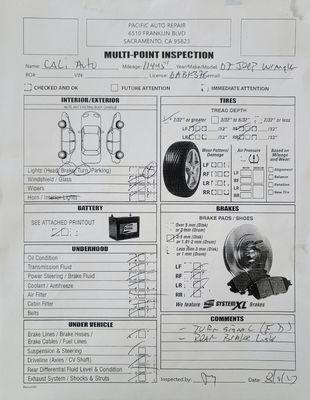 PACIFIC AUTO REPAIR
6510 FRANKLIN BLVD
SACRAMENTO, CA 95823
MULTI-POINT INSPECTION
Name: CALI Auto Mileage: Year/Make/Model: 07 JEEP Wrangler
RO#: VIN: License: Email:
CHECKED AND OK FUTURE ATTENTION IMMEDIATE ATTENTION
INTERIOR/EXTERIOR
Lights (Head/Brake/Turn/Parking)
Windshield / Glass
Wipers
Horn / Interior Lights
BATTERY
SEE ATTACHED PRINTOUT
UNDERHOOD
Oil Condition
Transmission Fluid
Power Steering / Brake Fluid
Coolant / Antifreeze
Air Filter
Cabin Filter
Belts
UNDER VEHICLE
Brake Lines / Brake Hoses /
Brake Cables / Fuel Lines
Suspension & Steering
Driveline (Axles / CV Shaft)
Rear Differential Fluid Level & Condition
Exhaust System / Shocks & Struts
TIRES
TREAD DEPTH
7/32" or greater 3/32" to 6/32" 2/32" or less
LF /32" RF /32"
LR /32" RR /32"
Wear Pattern/
Damage
Air Pressure
Based on
Mileage and
Wear:
LF
RF
LR
RR
Alignment
Balance
Rotation
New Tire
BRAKES
BRAKE PADS / SHOES
Over 5 mm (Disk)
or 2mm (Drum)
3-5 mm (Disk)
or 1.01-2 mm (Drum)
Less than 3 mm (Disk)
or 1 mm (Drum)
LF
RF
LR
RR
We feature SYSTEM XL Brakes
COMMENTS
- Turn signal
- Rear Brake Light
Inspected by: Date: